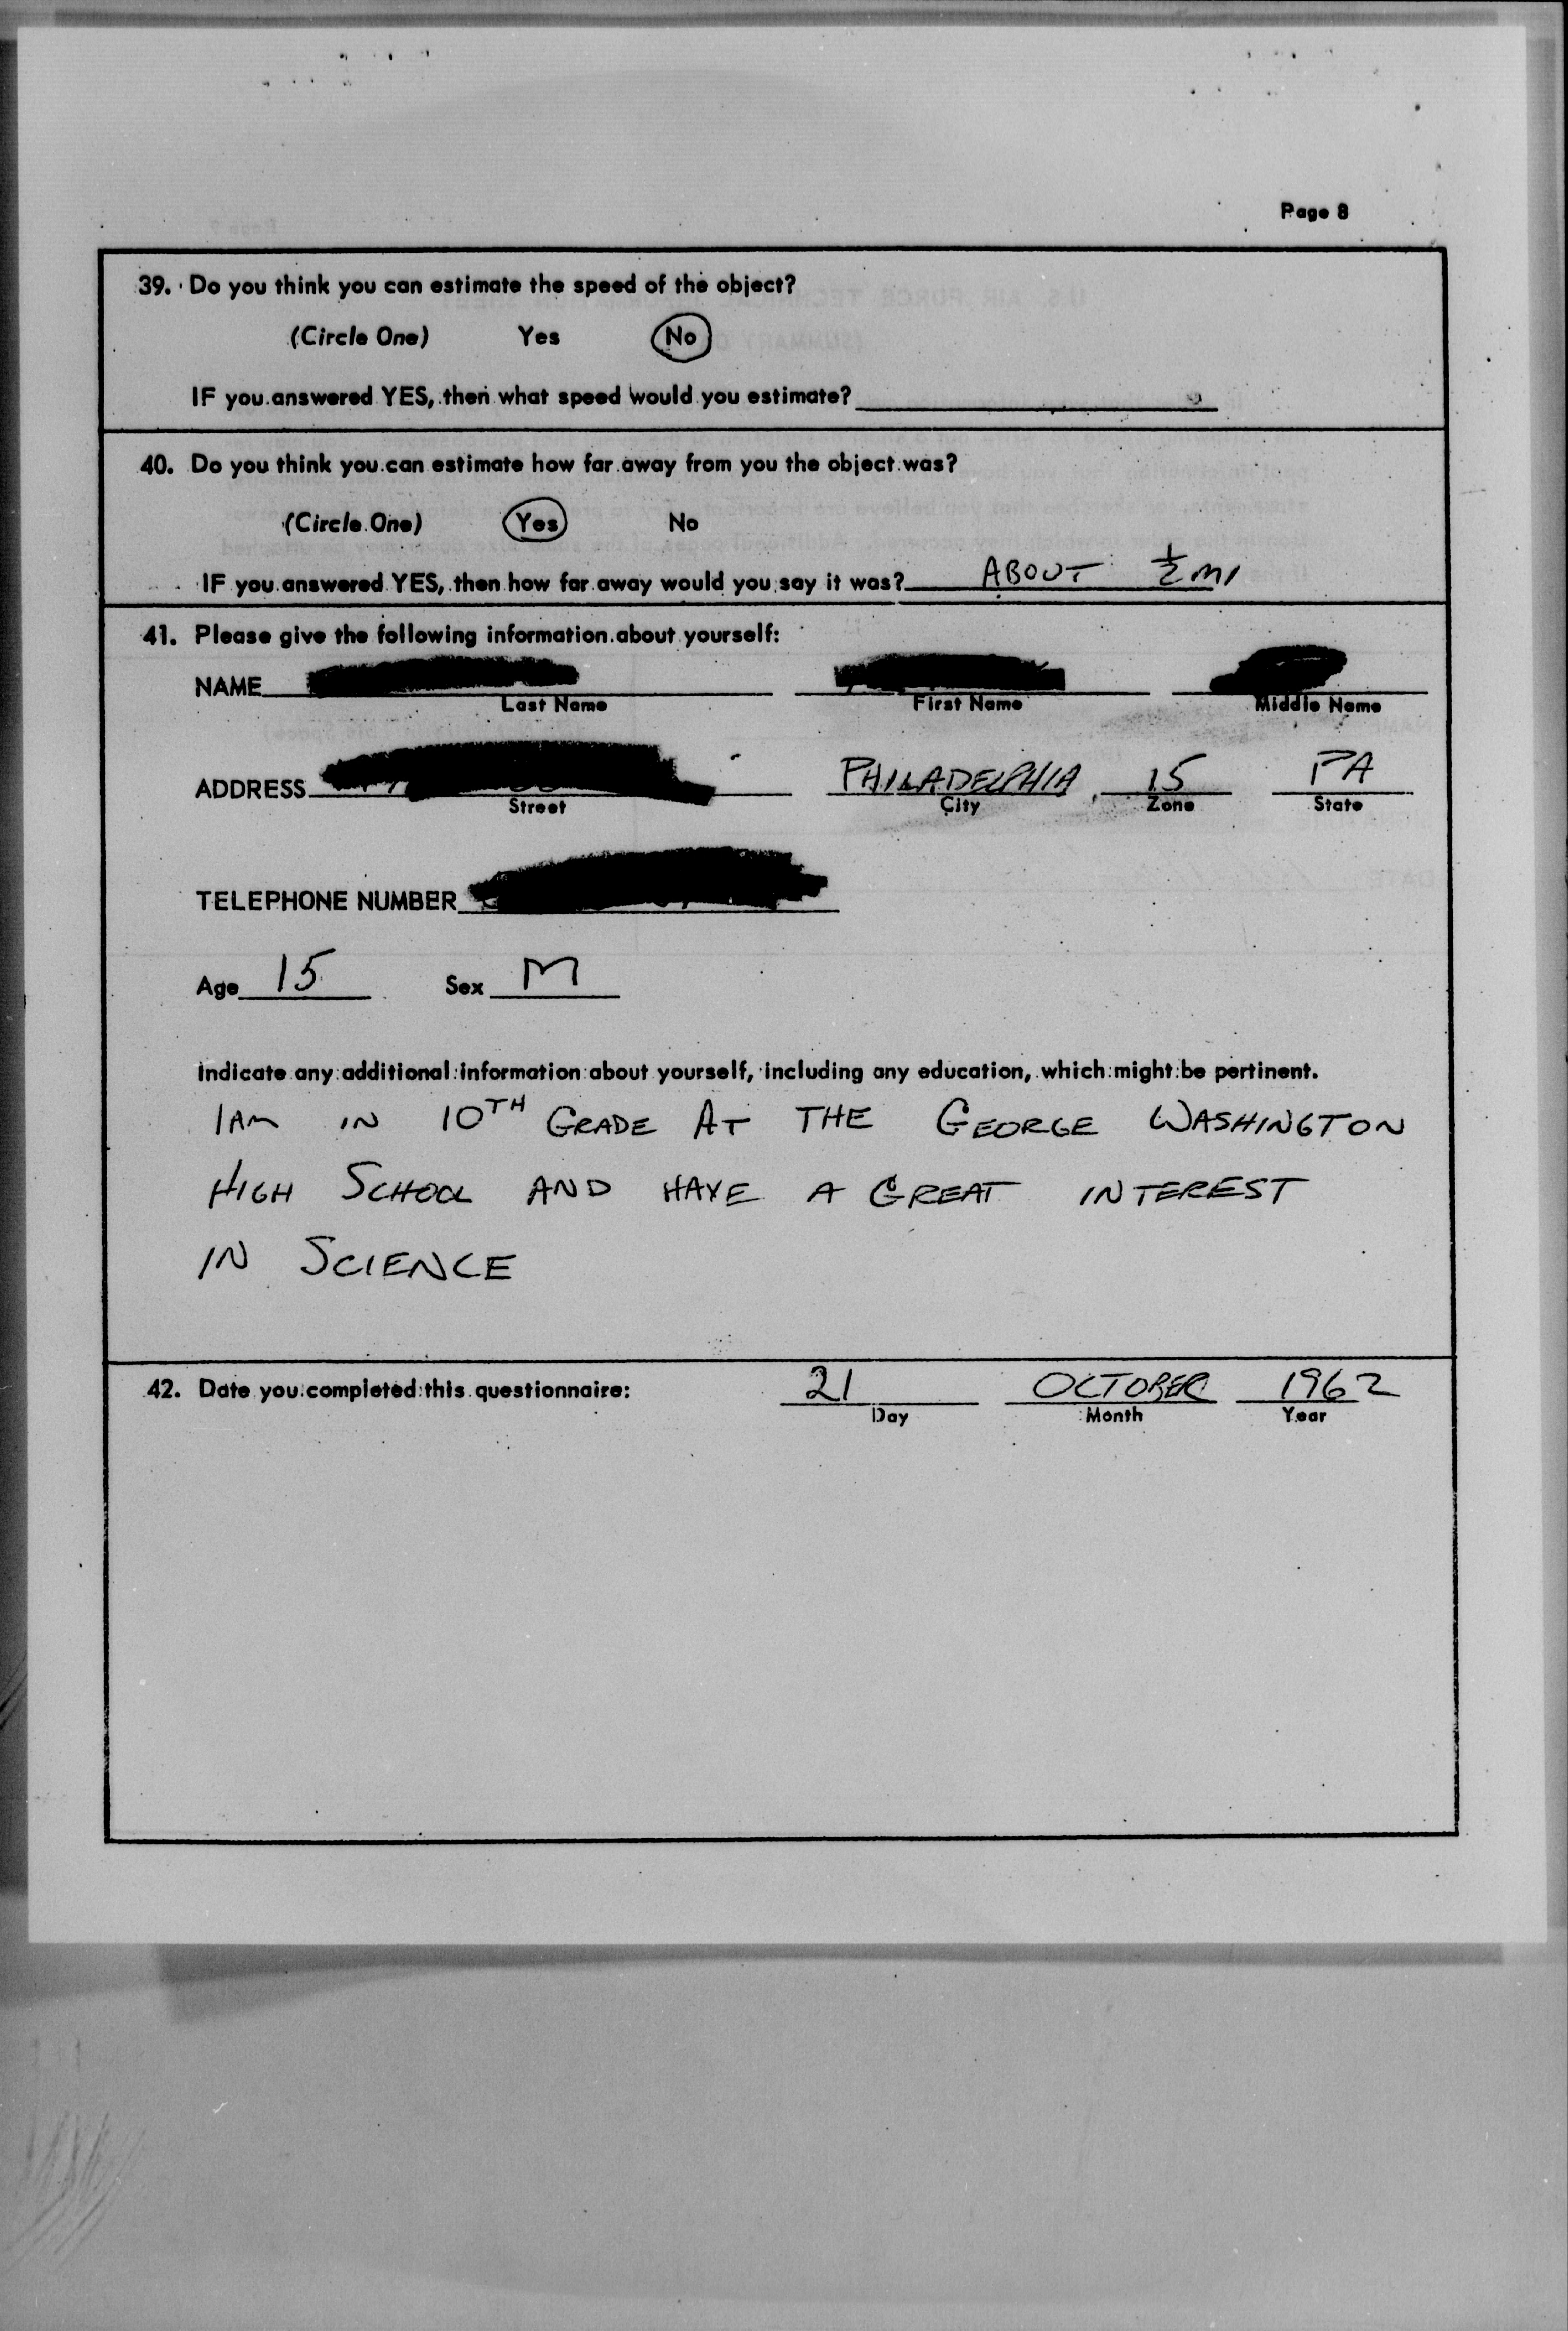 Page 8
39. Do you think you can estimate the speed of the object?
(Circle One) Yes No
IF you answered YES, then what speed would you estimate?
40. Do you think you can estimate how far away from you the object was?
(Circle One) Yes No
IF you answered YES, then how far away would you say it was? ABOUT ½ MI
41. Please give the following information about yourself:
NAME
Last Name First Name Middle Name
ADDRESS PHILADELPHIA 15 PA
Street City Zone State
TELEPHONE NUMBER
Age 15 Sex M
Indicate any additional information about yourself, including any education, which might be pertinent.
I AM IN 10TH GRADE AT THE GEORGE WASHINGTON
HIGH SCHOOL AND HAVE A GREAT INTEREST
IN SCIENCE
42. Date you completed this questionnaire: 21 OCTOBER 1962
Day Month Year